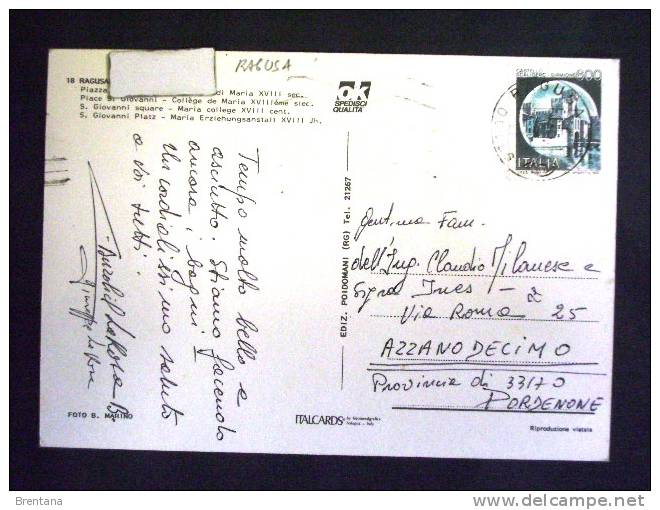 RAGUSA
18 RAGUSA
Piazza di Maria XVIII sec.
Place S. Giovanni - Collège de Maria XVIIIème siec.
S. Giovanni square - Maria college XVIII cent.
S. Giovanni Platz - Maria Erziehungsanstalt XVIII Jh.
ok
SPEDISCI
QUALITÀ
600
ITALIA
Tempo molto bello e
asciutto. Stiamo facendo
ancora i bagni! -
Un cordialissimo saluto
a voi tutti!
EDIZ. POIDOMANI (RG) Tel. 21267
Gent.ma Fam.
dell'Ing. Claudio Milanese e
Sig.ra Ines -
Via Roma 25
AZZANO DECIMO
Provincia di 33170
PORDENONE
FOTO S. MARINO
ITALCARDS
bologna - italy
Riproduzione vietata
Brentana
delcampe.net